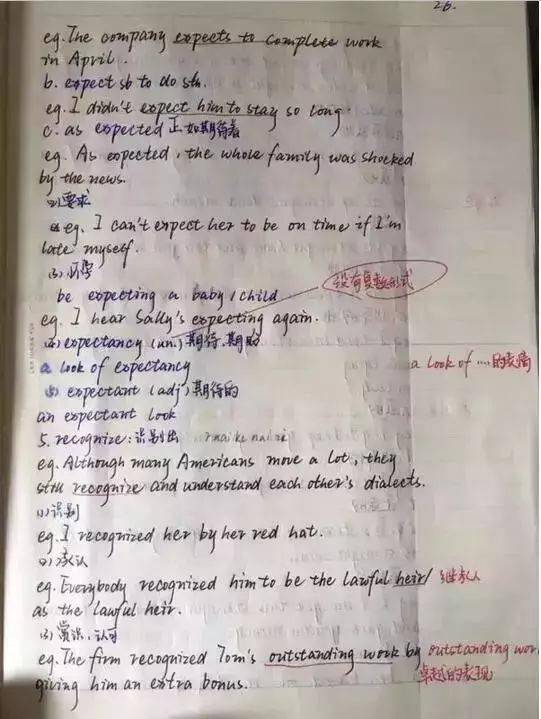 26.
eg. The company expects to complete work
in April.
b. expect sb to do sth.
eg. I didn't expect him to stay so long.
c. as expected 正如期待着
eg. As expected, the whole family was shocked
by the news.
(2) 要求
eg. I can't expect her to be on time if I'm
late myself.
(3) 怀孕
be expecting a baby/child
没有复数形式
eg. I hear Sally's expecting again.
expectancy (un.) 期待.期盼
a look of expectancy
a look of .... 的表情
expectant (adj) 期待的
an expectant look
5. recognize: 识别出
eg. Although many Americans move a lot, they
still recognize and understand each other's dialects.
(1) 识别
eg. I recognized her by her red hat.
(2) 承认
eg. Everybody recognized him to be the lawful heir/ 继承人
as the lawful heir.
(3) 赏识.认可
eg. The firm recognized Tom's outstanding work by outstanding wor
giving him an extra bonus. 卓越的表现